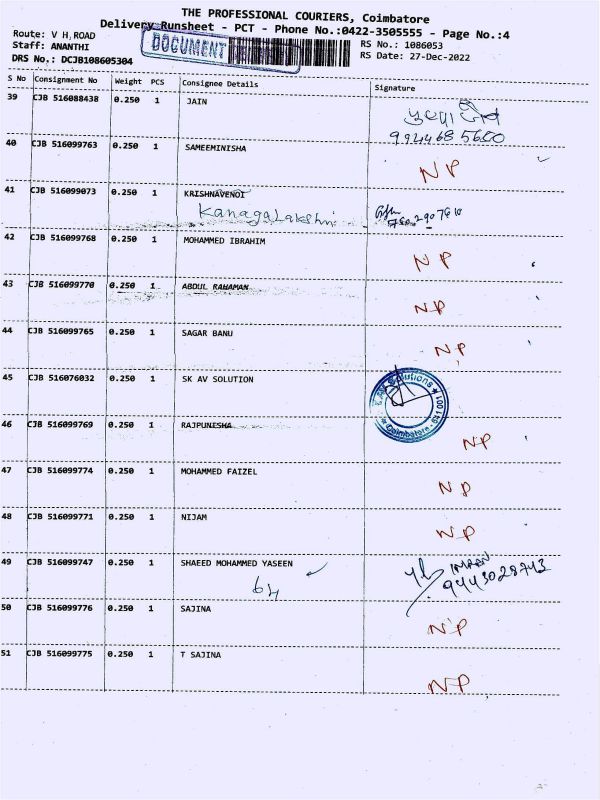 THE PROFESSIONAL COURIERS, Coimbatore
Delivery Runsheet - PCT - Phone No.:0422-3505555 - Page No.:4
Route: V H,ROAD
DOCUMENT
RS No.: 1086053
Staff: ANANTHI
RS Date: 27-Dec-2022
DRS No.: DCJB108605304
S No Consignment No Weight PCS Consignee Details Signature
39 CJB 516088438 0.250 1 JAIN
9944685600
40 CJB 516099763 0.250 1 SAMEEMINISHA NP
41 CJB 516099073 0.250 1 KRISHNAVENOI
Kanagalakshmi
42 CJB 516099768 0.250 1 MOHAMMED IBRAHIM NP
43 CJB 516099770 0.250 1 ABDUL RAHAMAN NP
44 CJB 516099765 0.250 1 SAGAR BANU NP
45 CJB 516076032 0.250 1 SK AV SOLUTION
AV Solutions Coimbatore - 641 001
46 CJB 516099769 0.250 1 RAJPUNISHA NP
47 CJB 516099774 0.250 1 MOHAMMED FAIZEL NP
48 CJB 516099771 0.250 1 NIJAM NP
49 CJB 516099747 0.250 1 SHAEED MOHAMMED YASEEN IMRAN
64 9443028743
50 CJB 516099776 0.250 1 SAJINA NP
51 CJB 516099775 0.250 1 T SAJINA NP